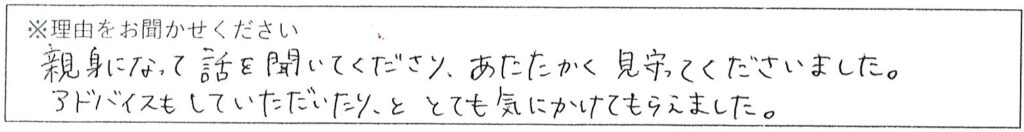 ※理由をお聞かせください
親身になって話を聞いてくださり、あたたかく見守ってくださいました。
アドバイスもしていただいたり、と とても気にかけてもらえました。